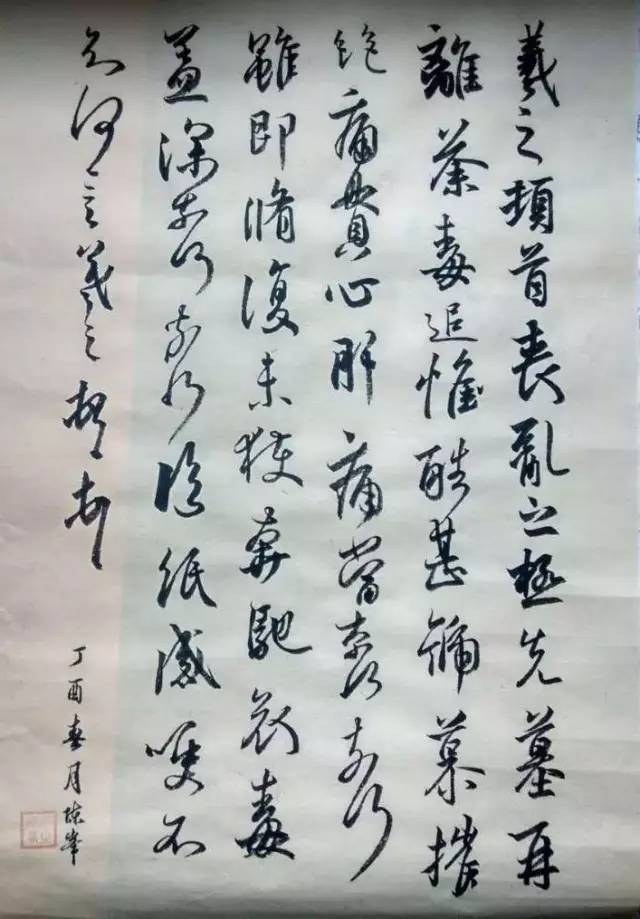 羲之頓首喪亂之極先墓再
離荼毒追惟酷甚號慕摧
絕痛貫心肝痛當奈何奈何
雖即脩復未獲奔馳哀毒
益深奈何奈何臨紙感哽不
知何言羲之頓首
丁酉春月陳峰